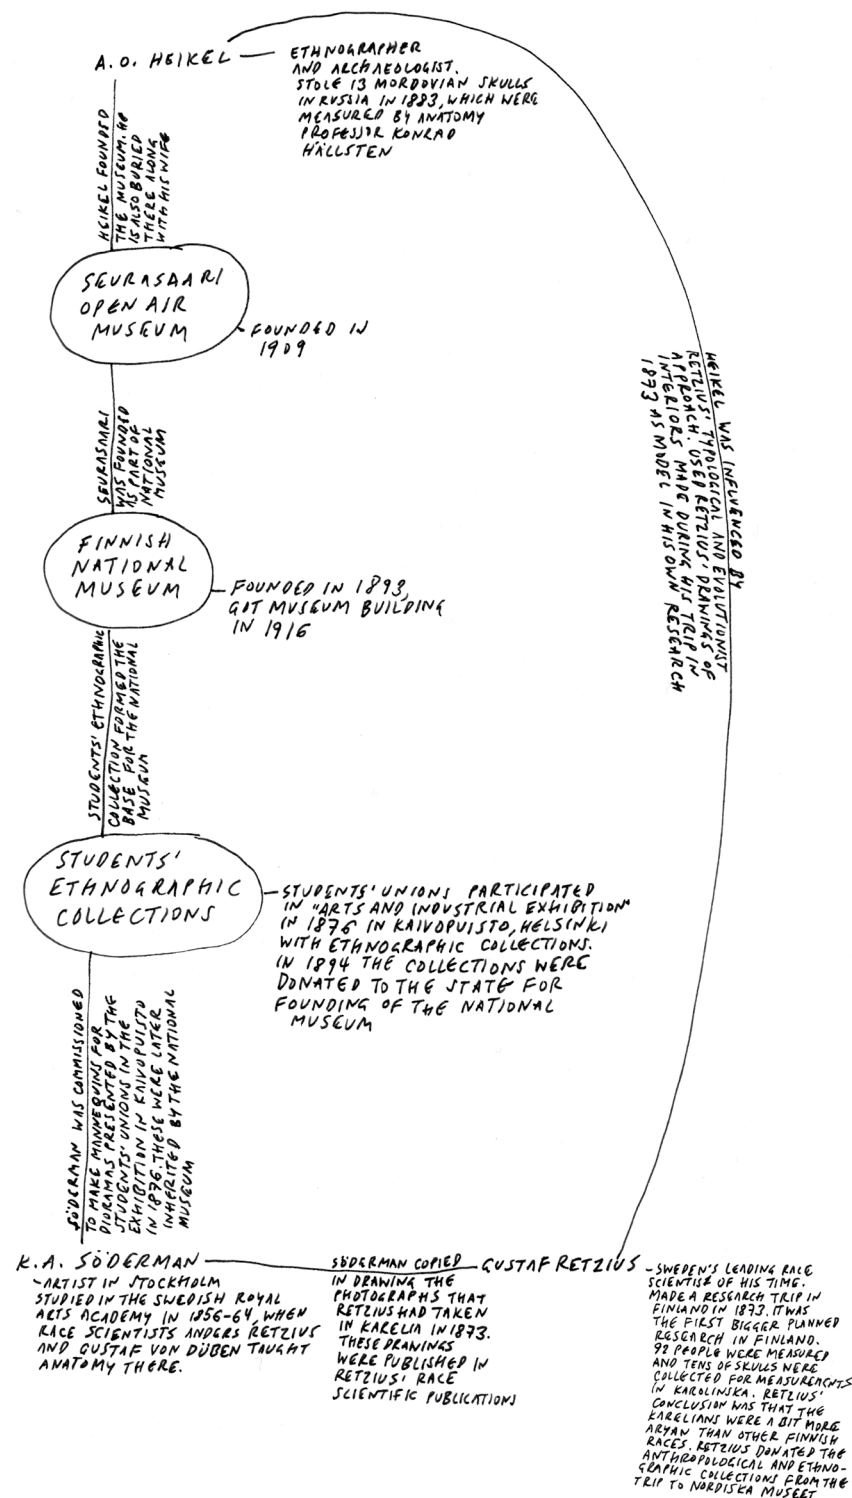 A. O. HEIKEL
ETHNOGRAPHER
AND ARCHAEOLOGIST.
STOLE 13 MORDOVIAN SKULLS
IN RUSSIA IN 1883, WHICH WERE
MEASURED BY ANATOMY
PROFESSOR KONRAD
HÄLLSTEN
HEIKEL FOUNDED
THE MUSEUM. HE
IS ALSO BURIED
THERE ALONG
WITH HIS WIFE
SEURASAARI
OPEN AIR
MUSEUM
FOUNDED IN
1909
HEIKEL WAS INFLUENCED BY
RETZIUS' TYPOLOGICAL AND EVOLUTIONIST
APPROACH. USED RETZIUS' DRAWINGS OF
INTERIORS MADE DURING HIS TRIP IN
1873 AS MODEL IN HIS OWN RESEARCH
SEURASAARI
WAS FOUNDED
AS PART OF
NATIONAL
MUSEUM
FINNISH
NATIONAL
MUSEUM
FOUNDED IN 1893,
GOT MUSEUM BUILDING
IN 1916
STUDENTS' ETHNOGRAPHIC
COLLECTION FORMED THE
BASE FOR THE NATIONAL
MUSEUM
STUDENTS'
ETHNOGRAPHIC
COLLECTIONS
STUDENTS' UNIONS PARTICIPATED
IN "ARTS AND INDUSTRIAL EXHIBITION"
IN 1876 IN KAIVOPUISTO, HELSINKI
WITH ETHNOGRAPHIC COLLECTIONS.
IN 1894 THE COLLECTIONS WERE
DONATED TO THE STATE FOR
FOUNDING OF THE NATIONAL
MUSEUM
SÖDERMAN WAS COMMISSIONED
TO MAKE MANNEQUINS FOR
DIORAMAS PRESENTED BY THE
STUDENTS' UNIONS IN THE
EXHIBITION IN KAIVOPUISTO
IN 1876. THESE WERE LATER
INHERITED BY THE NATIONAL
MUSEUM
K. A. SÖDERMAN
-ARTIST IN STOCKHOLM
STUDIED IN THE SWEDISH ROYAL
ARTS ACADEMY IN 1856-64, WHEN
RACE SCIENTISTS ANDERS RETZIUS
AND GUSTAF VON DÜBEN TAUGHT
ANATOMY THERE.
SÖDERMAN COPIED
IN DRAWING THE
PHOTOGRAPHS THAT
RETZIUS HAD TAKEN
IN KARELIA IN 1873.
THESE DRAWINGS
WERE PUBLISHED IN
RETZIUS' RACE
SCIENTIFIC PUBLICATIONS
GUSTAF RETZIUS
-SWEDEN'S LEADING RACE
SCIENTIST OF HIS TIME.
MADE A RESEARCH TRIP IN
FINLAND IN 1873. IT WAS
THE FIRST BIGGER PLANNED
RESEARCH IN FINLAND.
92 PEOPLE WERE MEASURED
AND TENS OF SKULLS WERE
COLLECTED FOR MEASUREMENTS
IN KAROLINSKA. RETZIUS'
CONCLUSION WAS THAT THE
KARELIANS WERE A BIT MORE
ARYAN THAN OTHER FINNISH
RACES. RETZIUS DONATED THE
ANTHROPOLOGICAL AND ETHNO-
GRAPHIC COLLECTIONS FROM THE
TRIP TO NORDISKA MUSEET